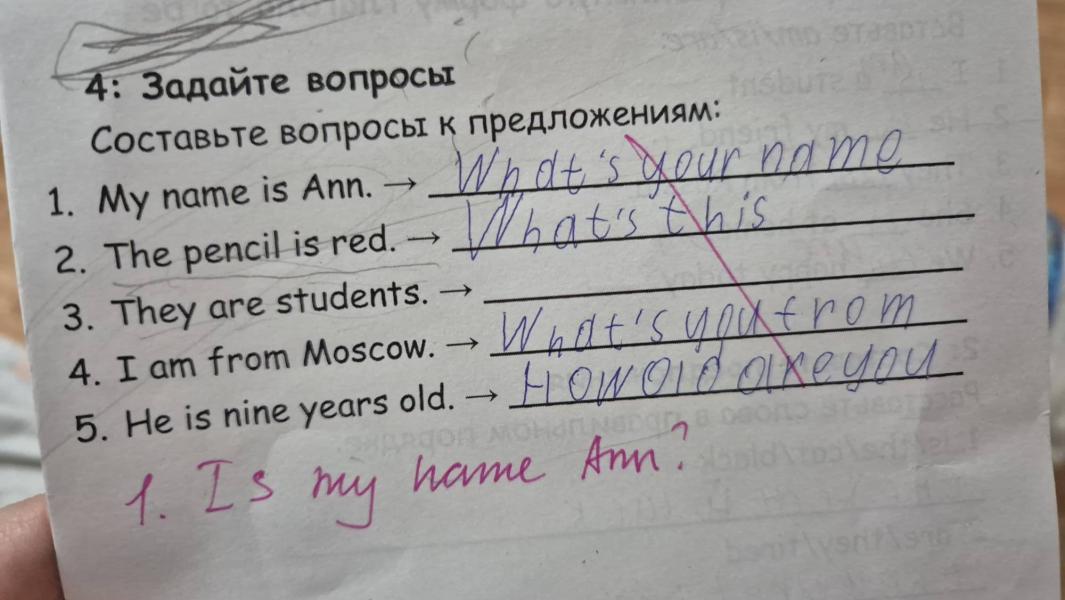 4: Задайте вопросы
Составьте вопросы к предложениям:
1. My name is Ann. → What's your name
2. The pencil is red. → What's this
3. They are students. →
4. I am from Moscow. → What's you from
5. He is nine years old. → How old are you
1. Is my name Ann?